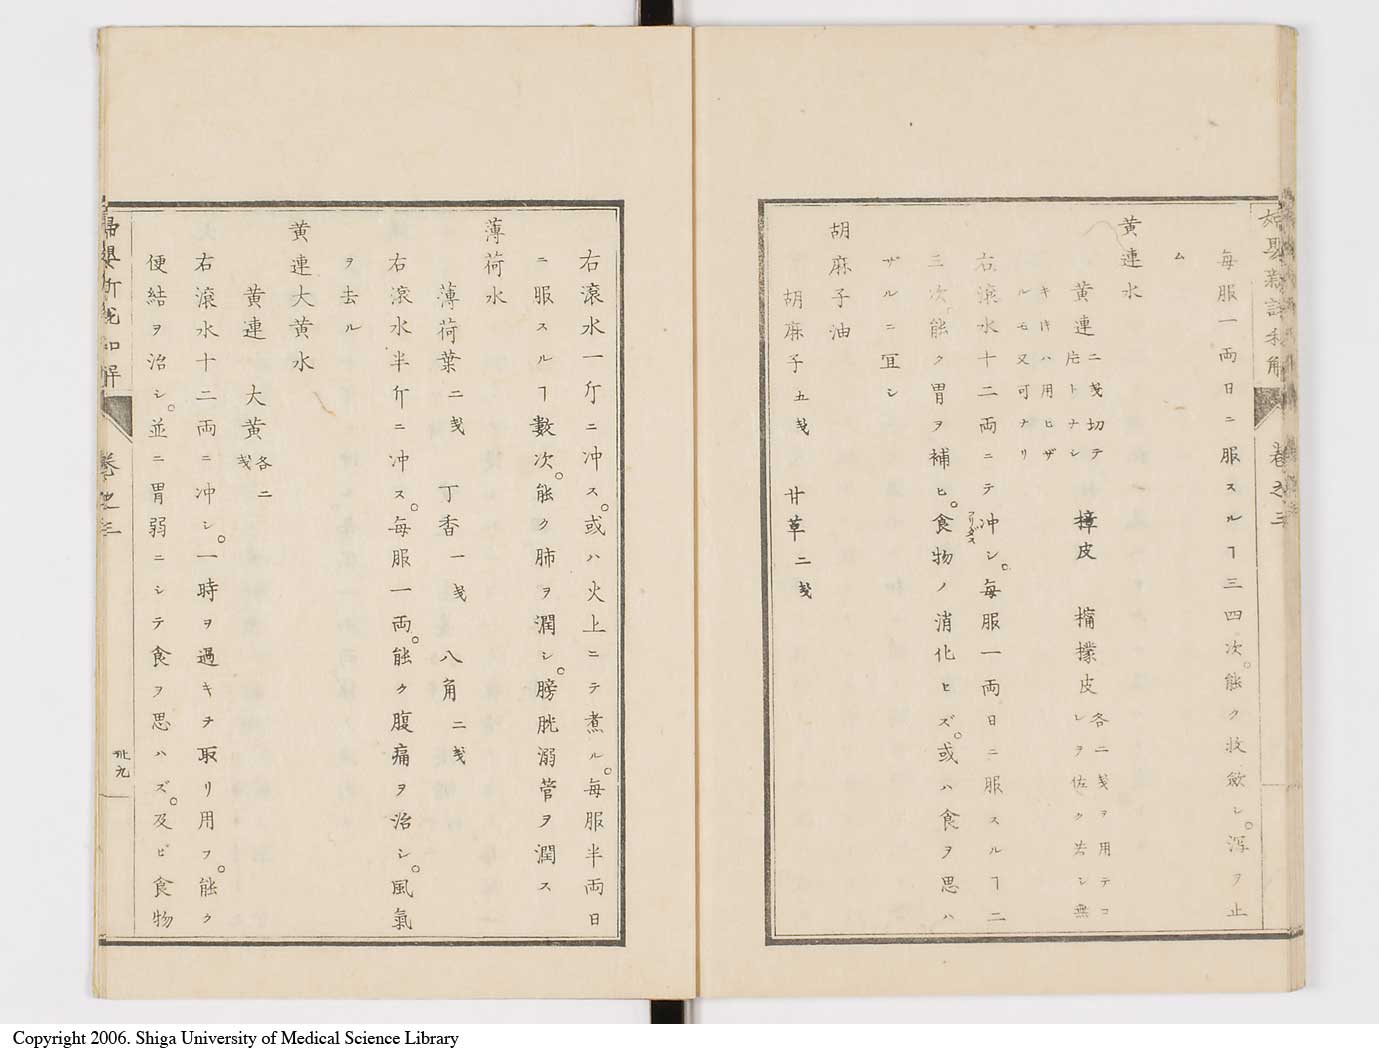 毎服一両日ニ服スルヿ三四次。能ク收斂シ。瀉ヲ止
ム
黄連水
黄連二戔切テ片トナシ 樟皮 橚檬皮各二戔ヲ用テコレヲ佐ク若シ無
キ時ハ用ヒザルモ又可ナリ
右滾水十二両ニテ冲シ。毎服一両日ニ服スルヿ二
三次能ク胃ヲ補ヒ。食物ノ消化ヒズ。或ハ食ヲ思ハ
ザルニ冝シ
胡麻子油
胡麻子五戔 甘草二戔
右滾水一斤ニ冲ス。或ハ火上ニテ煮ル。毎服半両日
ニ服スルヿ數次。能ク肺ヲ潤シ。膀胱溺管ヲ潤ス
薄荷水
薄荷葉二戔 丁香一戔 八角二戔
右滾水半斤ニ冲ス。毎服一両。能ク腹痛ヲ治シ。風氣
ヲ去ル
黄連大黄水
黄連 大黄各二戔
右滾水十二両ニ冲シ。一時ヲ過キヲ取リ用フ。能ク
便結ヲ治シ。並ニ胃弱ニシテ食ヲ思ハズ。及ビ食物
卅九
Copyright 2006. Shiga University of Medical Science Library